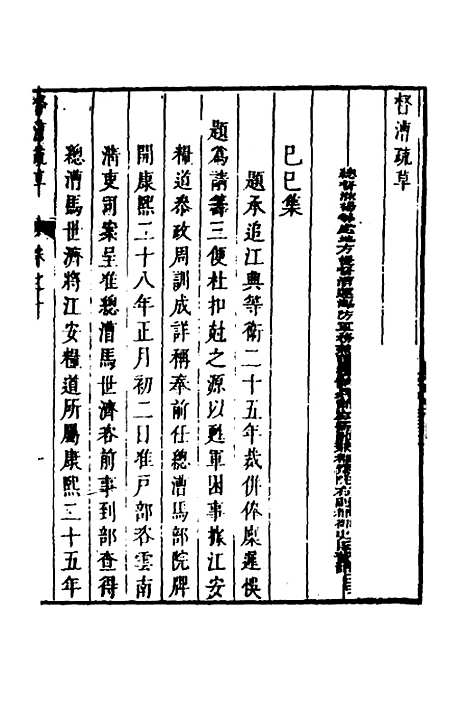 督漕疏草
總督淮揚等處地方提督漕運海防軍務兼
己巳集
題承追江興等衛二十五年裁併俸糜遲悞
題為請籌三便杜扣尅之源以甦軍困事據江安
糧道叅政周訓成詳稱奉前任總漕馬部院牌
開康熙二十八年正月初二日准戶部咨雲南
清吏司案呈准總漕馬世濟咨前事到部查得
總漕馬世濟將江安糧道所屬康熙二十五年
督漕疏草